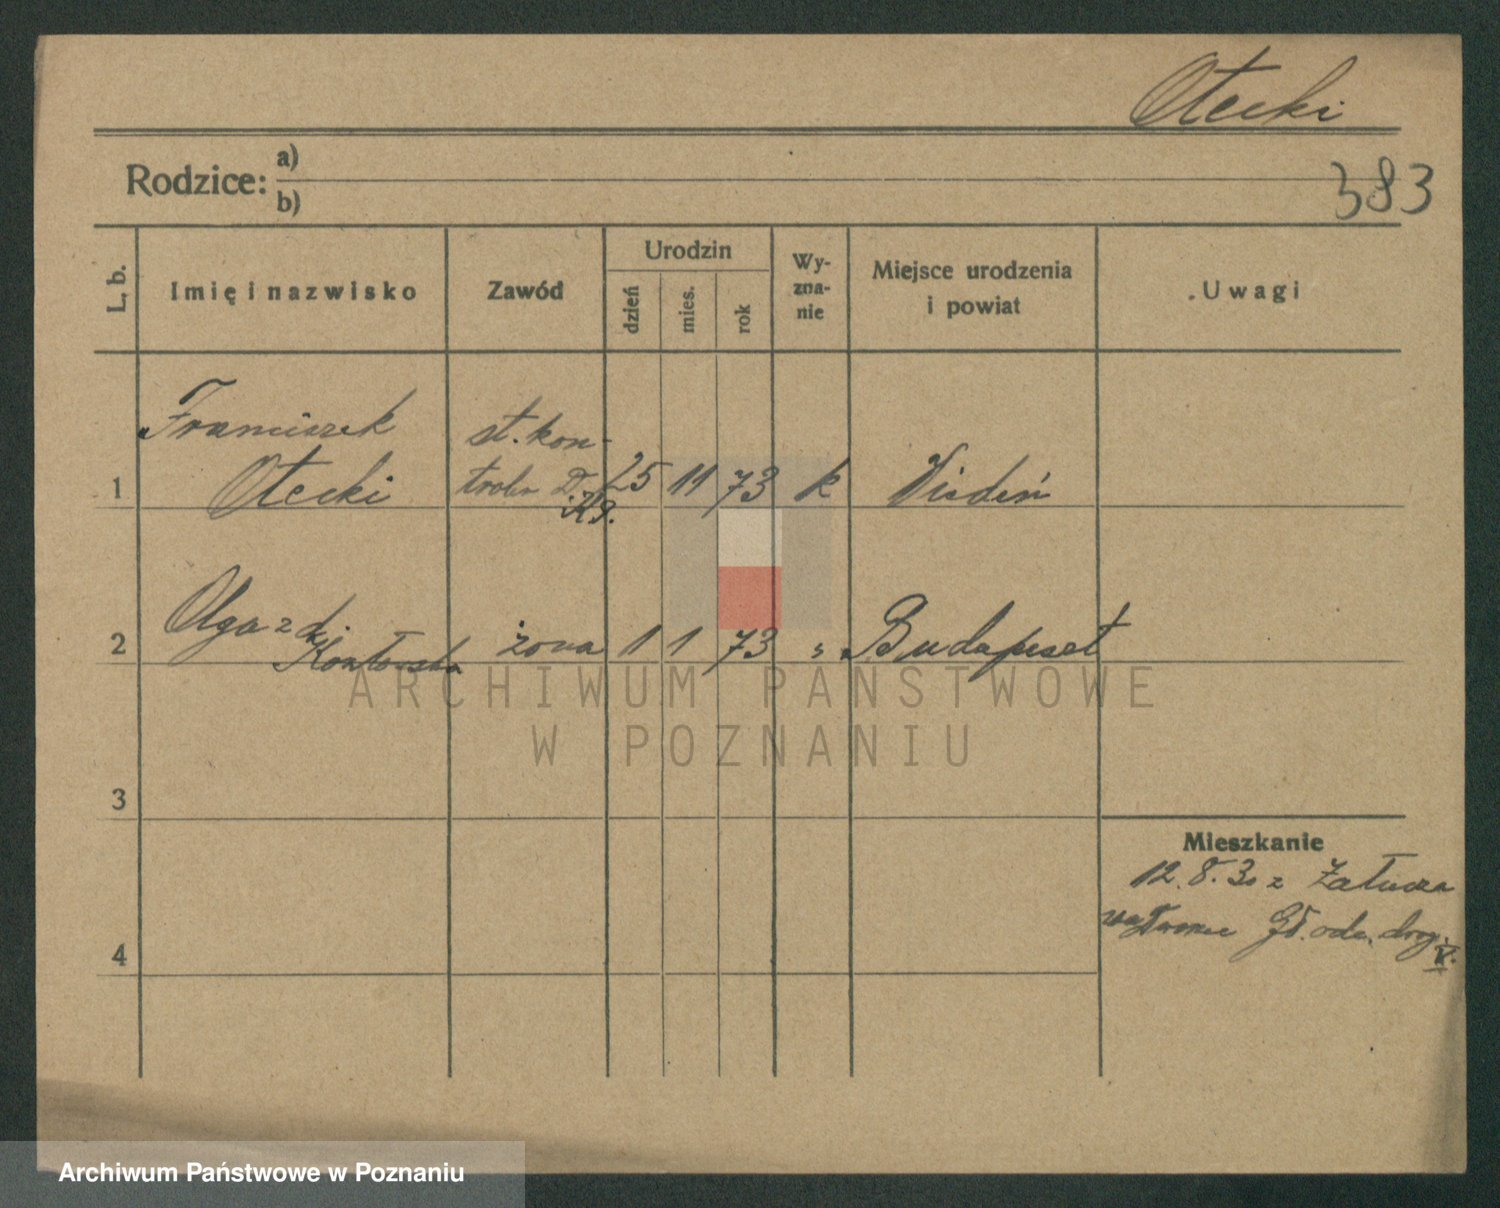 Otecki
Rodzice: a)
b)
383
L. b.
Imię i nazwisko
Zawód
Urodzin
dzień
mies.
rok
Wy-
zna-
nie
Miejsce urodzenia
i powiat
Uwagi
Franciszek
st. kon-
1 Otecki 25 11 73 k Wiedeń
2 Olga z d. żona 1 1 73 " Budapeszt
ARCHIWUM PAŃSTWOWE
W POZNANIU
3
Mieszkanie
12.8.30 z
4
Archiwum Państwowe w Poznaniu